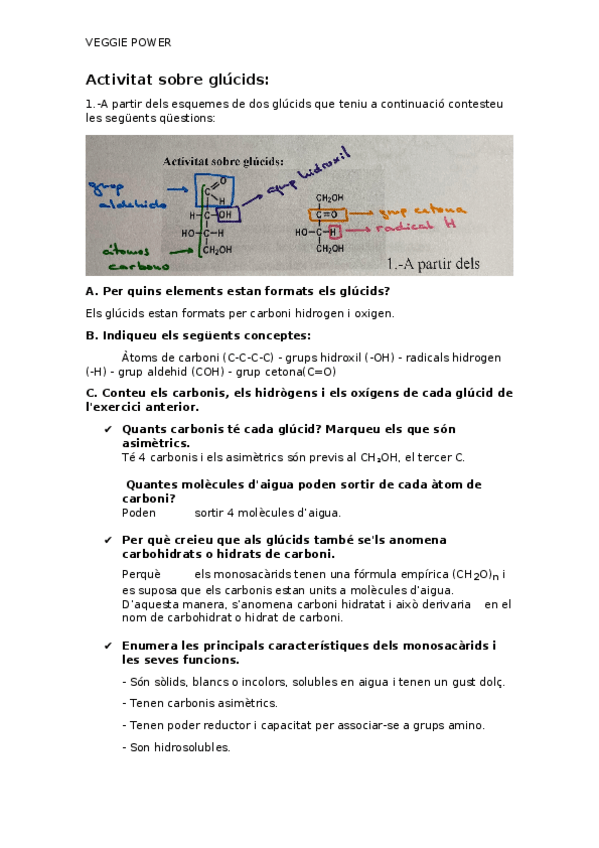 VEGGIE POWER
Activitat sobre glúcids:
1.-A partir dels esquemes de dos glúcids que teniu a continuació contesteu
les següents qüestions:
Activitat sobre glúcids:
grup hidroxil
grup
aldehido
C
O
H
H-C-OH
HO-C-H
CH₂OH
átomos
carbono
CH₂OH
C=O
HO-C-H
CH₂OH
grup cetona
radical H
1.-A partir dels
A. Per quins elements estan formats els glúcids?
Els glúcids estan formats per carboni hidrogen i oxigen.
B. Indiqueu els següents conceptes:
Àtoms de carboni (C-C-C-C) - grups hidroxil (-OH) - radicals hidrogen
(-H) - grup aldehid (COH) - grup cetona(C=O)
C. Conteu els carbonis, els hidrògens i els oxígens de cada glúcid de
l'exercici anterior.
✔ Quants carbonis té cada glúcid? Marqueu els que són
asimètrics.
Té 4 carbonis i els asimètrics són previs al CH₂OH, el tercer C.
Quantes molècules d'aigua poden sortir de cada àtom de
carboni?
Poden sortir 4 molècules d'aigua.
✔ Per què creieu que als glúcids també se'ls anomena
carbohidrats o hidrats de carboni.
Perquè els monosacàrids tenen una fórmula empírica (CH₂O)ₙ i
es suposa que els carbonis estan units a molècules d'aigua.
D'aquesta manera, s'anomena carboni hidratat i això derivaria en el
nom de carbohidrat o hidrat de carboni.
✔ Enumera les principals característiques dels monosacàrids i
les seves funcions.
- Són sòlids, blancs o incolors, solubles en aigua i tenen un gust dolç.
- Tenen carbonis asimètrics.
- Tenen poder reductor i capacitat per associar-se a grups amino.
- Son hidrosolubles.